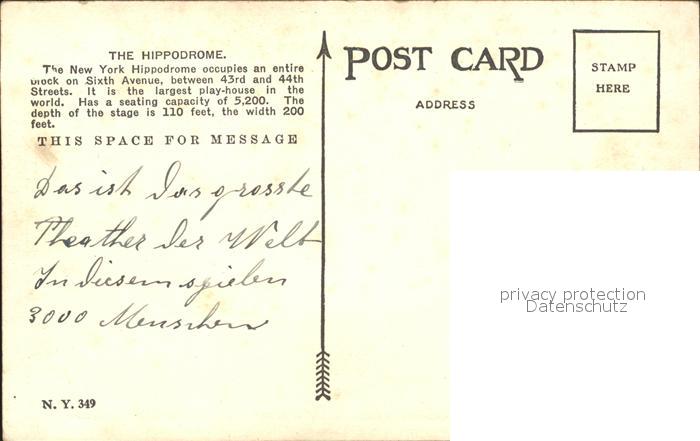 THE HIPPODROME.
The New York Hippodrome occupies an entire
block on Sixth Avenue, between 43rd and 44th
Streets. It is the largest play-house in the
world. Has a seating capacity of 5,200. The
depth of the stage is 110 feet, the width 200
feet.
THIS SPACE FOR MESSAGE
Das ist das grosste
Theather der Welt
In diesem spielen
3000 Menschen
N. Y. 349
POST CARD
ADDRESS
STAMP
HERE
privacy protection
Datenschutz